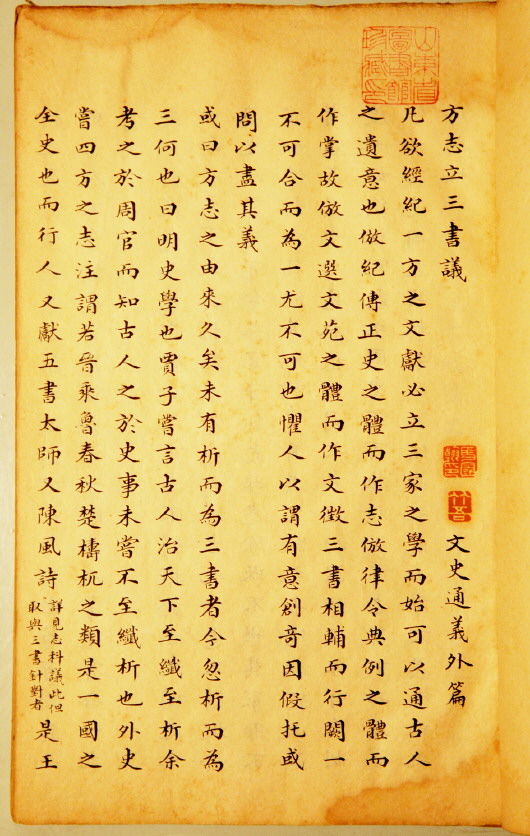 山東省圖書館珍藏印
方志立三書議
竹吾
文史通義外篇
凡欲經紀一方之文獻必立三家之學而始可以通古人
之遺意也倣紀傳正史之體而作志倣律令典例之體而
作掌故倣文選文苑之體而作文徵三書相輔而行闕一
不可合而為一尤不可也懼人以謂有意創奇因假托或
問以盡其義
或曰方志之由來久矣未有析而為三書者今忽析而為
三何也曰明史學也賈子嘗言古人治天下至纖至析余
考之於周官而知古人之於史事未嘗不至纖析也外史
嘗四方之志注謂若晉乘魯春秋楚檮杌之類是一國之
全史也而行人又獻五書太師又陳風詩詳見志科議此但取與三書針對者是王